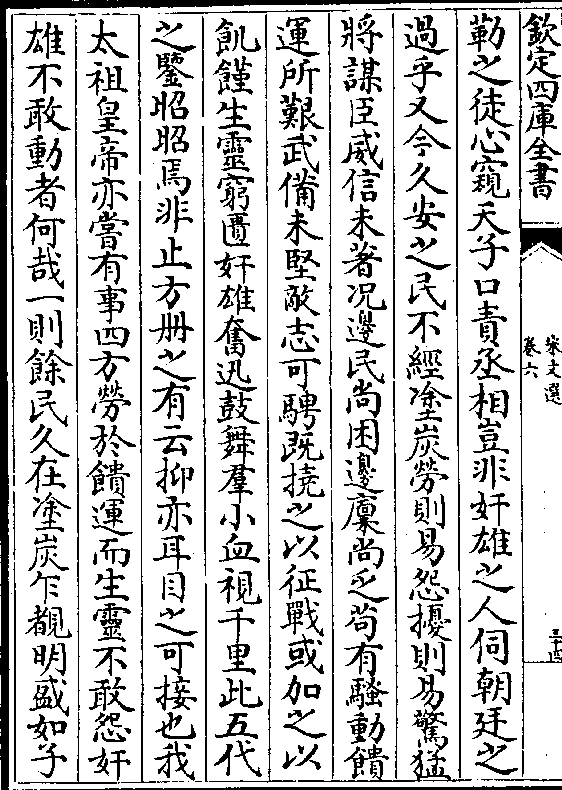 欽定四庫全書
宋文選
卷六
三十四
勒之徒心窺天子口責丞相豈非奸雄之人伺朝廷之
過乎又今久安之民不經塗炭勞則易怨擾則易驚猛
將謀臣威信未著况邊民尚困邊廩尚乏苟有騷動饋
運所艱武備未堅敵志可騁既撓之以征戰或加之以
飢饉生靈窮匱奸雄奮迅鼓舞羣小血視千里此五代
之鑒昭昭焉非止方册之有云抑亦耳目之可接也我
太祖皇帝亦嘗有事四方勞於饋運而生靈不敢怨奸
雄不敢動者何哉一則餘民久在塗炭乍覩明盛如子